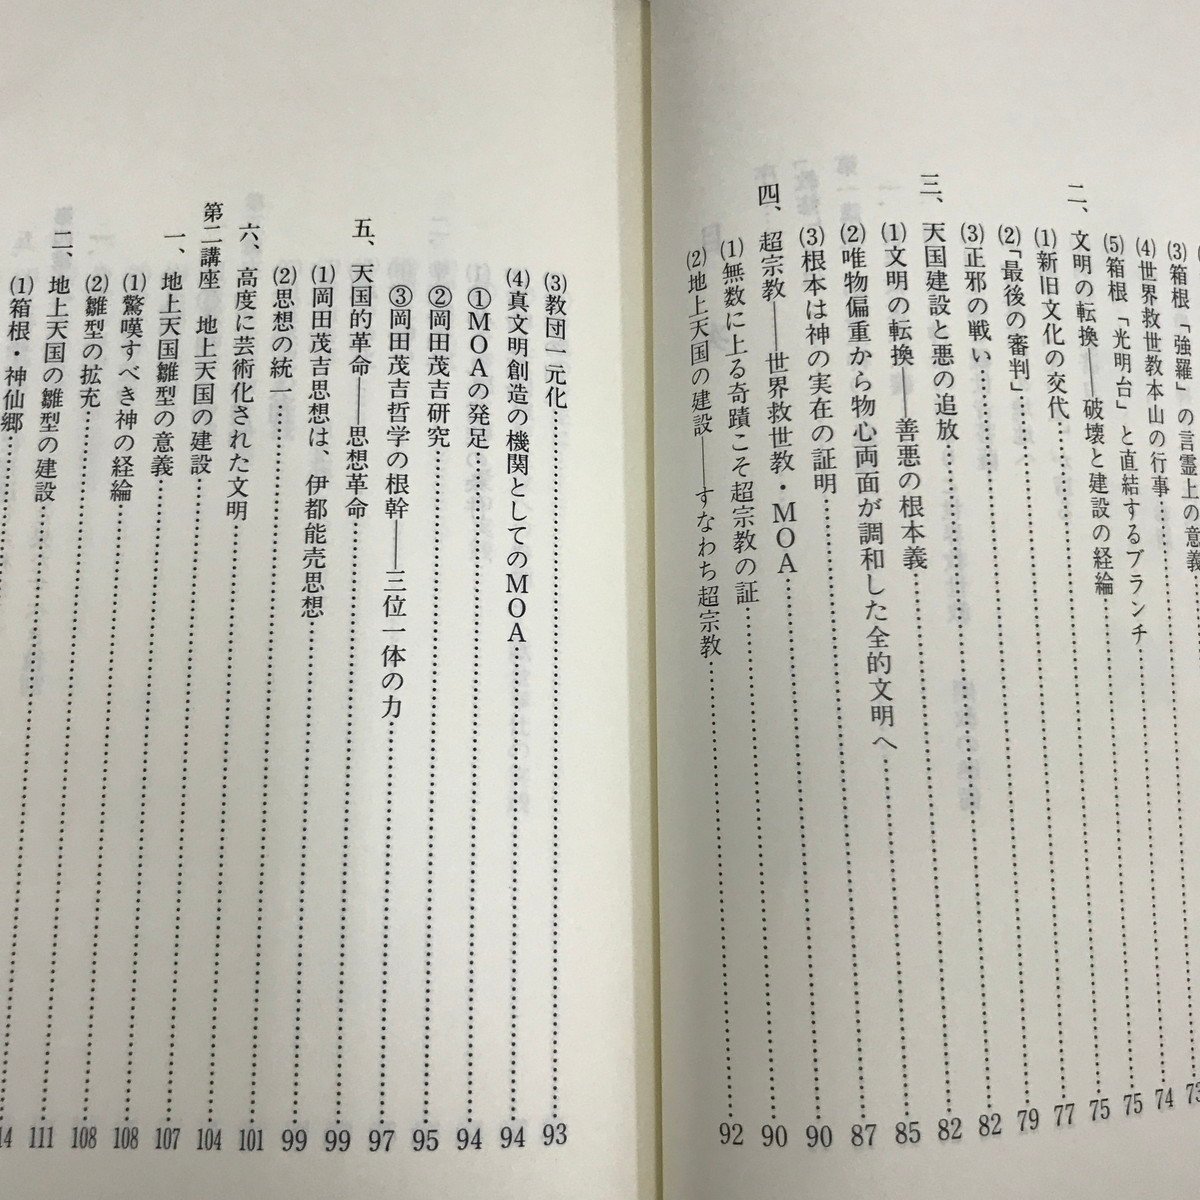 (3)箱根「強羅」の言霊上の意義
(4)世界救世教本山の行事 73
(5)箱根「光明台」と直結するブランチ 74
二、文明の転換――破壊と建設の経綸 75
(1)新旧文化の交代 75
(2)「最後の審判」 77
(3)正邪の戦い 79
三、天国建設と悪の追放 82
(1)文明の転換――善悪の根本義 82
(2)唯物偏重から物心両面が調和した全的文明へ 85
(3)根本は神の実在の証明 87
四、超宗教――世界救世教・MOA 90
(1)無数に上る奇蹟こそ超宗教の証 90
(2)地上天国の建設――すなわち超宗教 92
(3)教団一元化 93
(4)真文明創造の機関としてのMOA 94
①MOAの発足 94
②岡田茂吉研究 95
③岡田茂吉哲学の根幹――三位一体の力 97
五、天国的革命――思想革命 99
(1)岡田茂吉思想は、伊都能売思想 99
(2)思想の統一 101
六、高度に芸術化された文明 104
第二講座 地上天国の建設 107
一、地上天国雛型の意義 108
(1)驚嘆すべき神の経綸 108
(2)雛型の拡充 111
二、地上天国の雛型の建設
(1)箱根・神仙郷